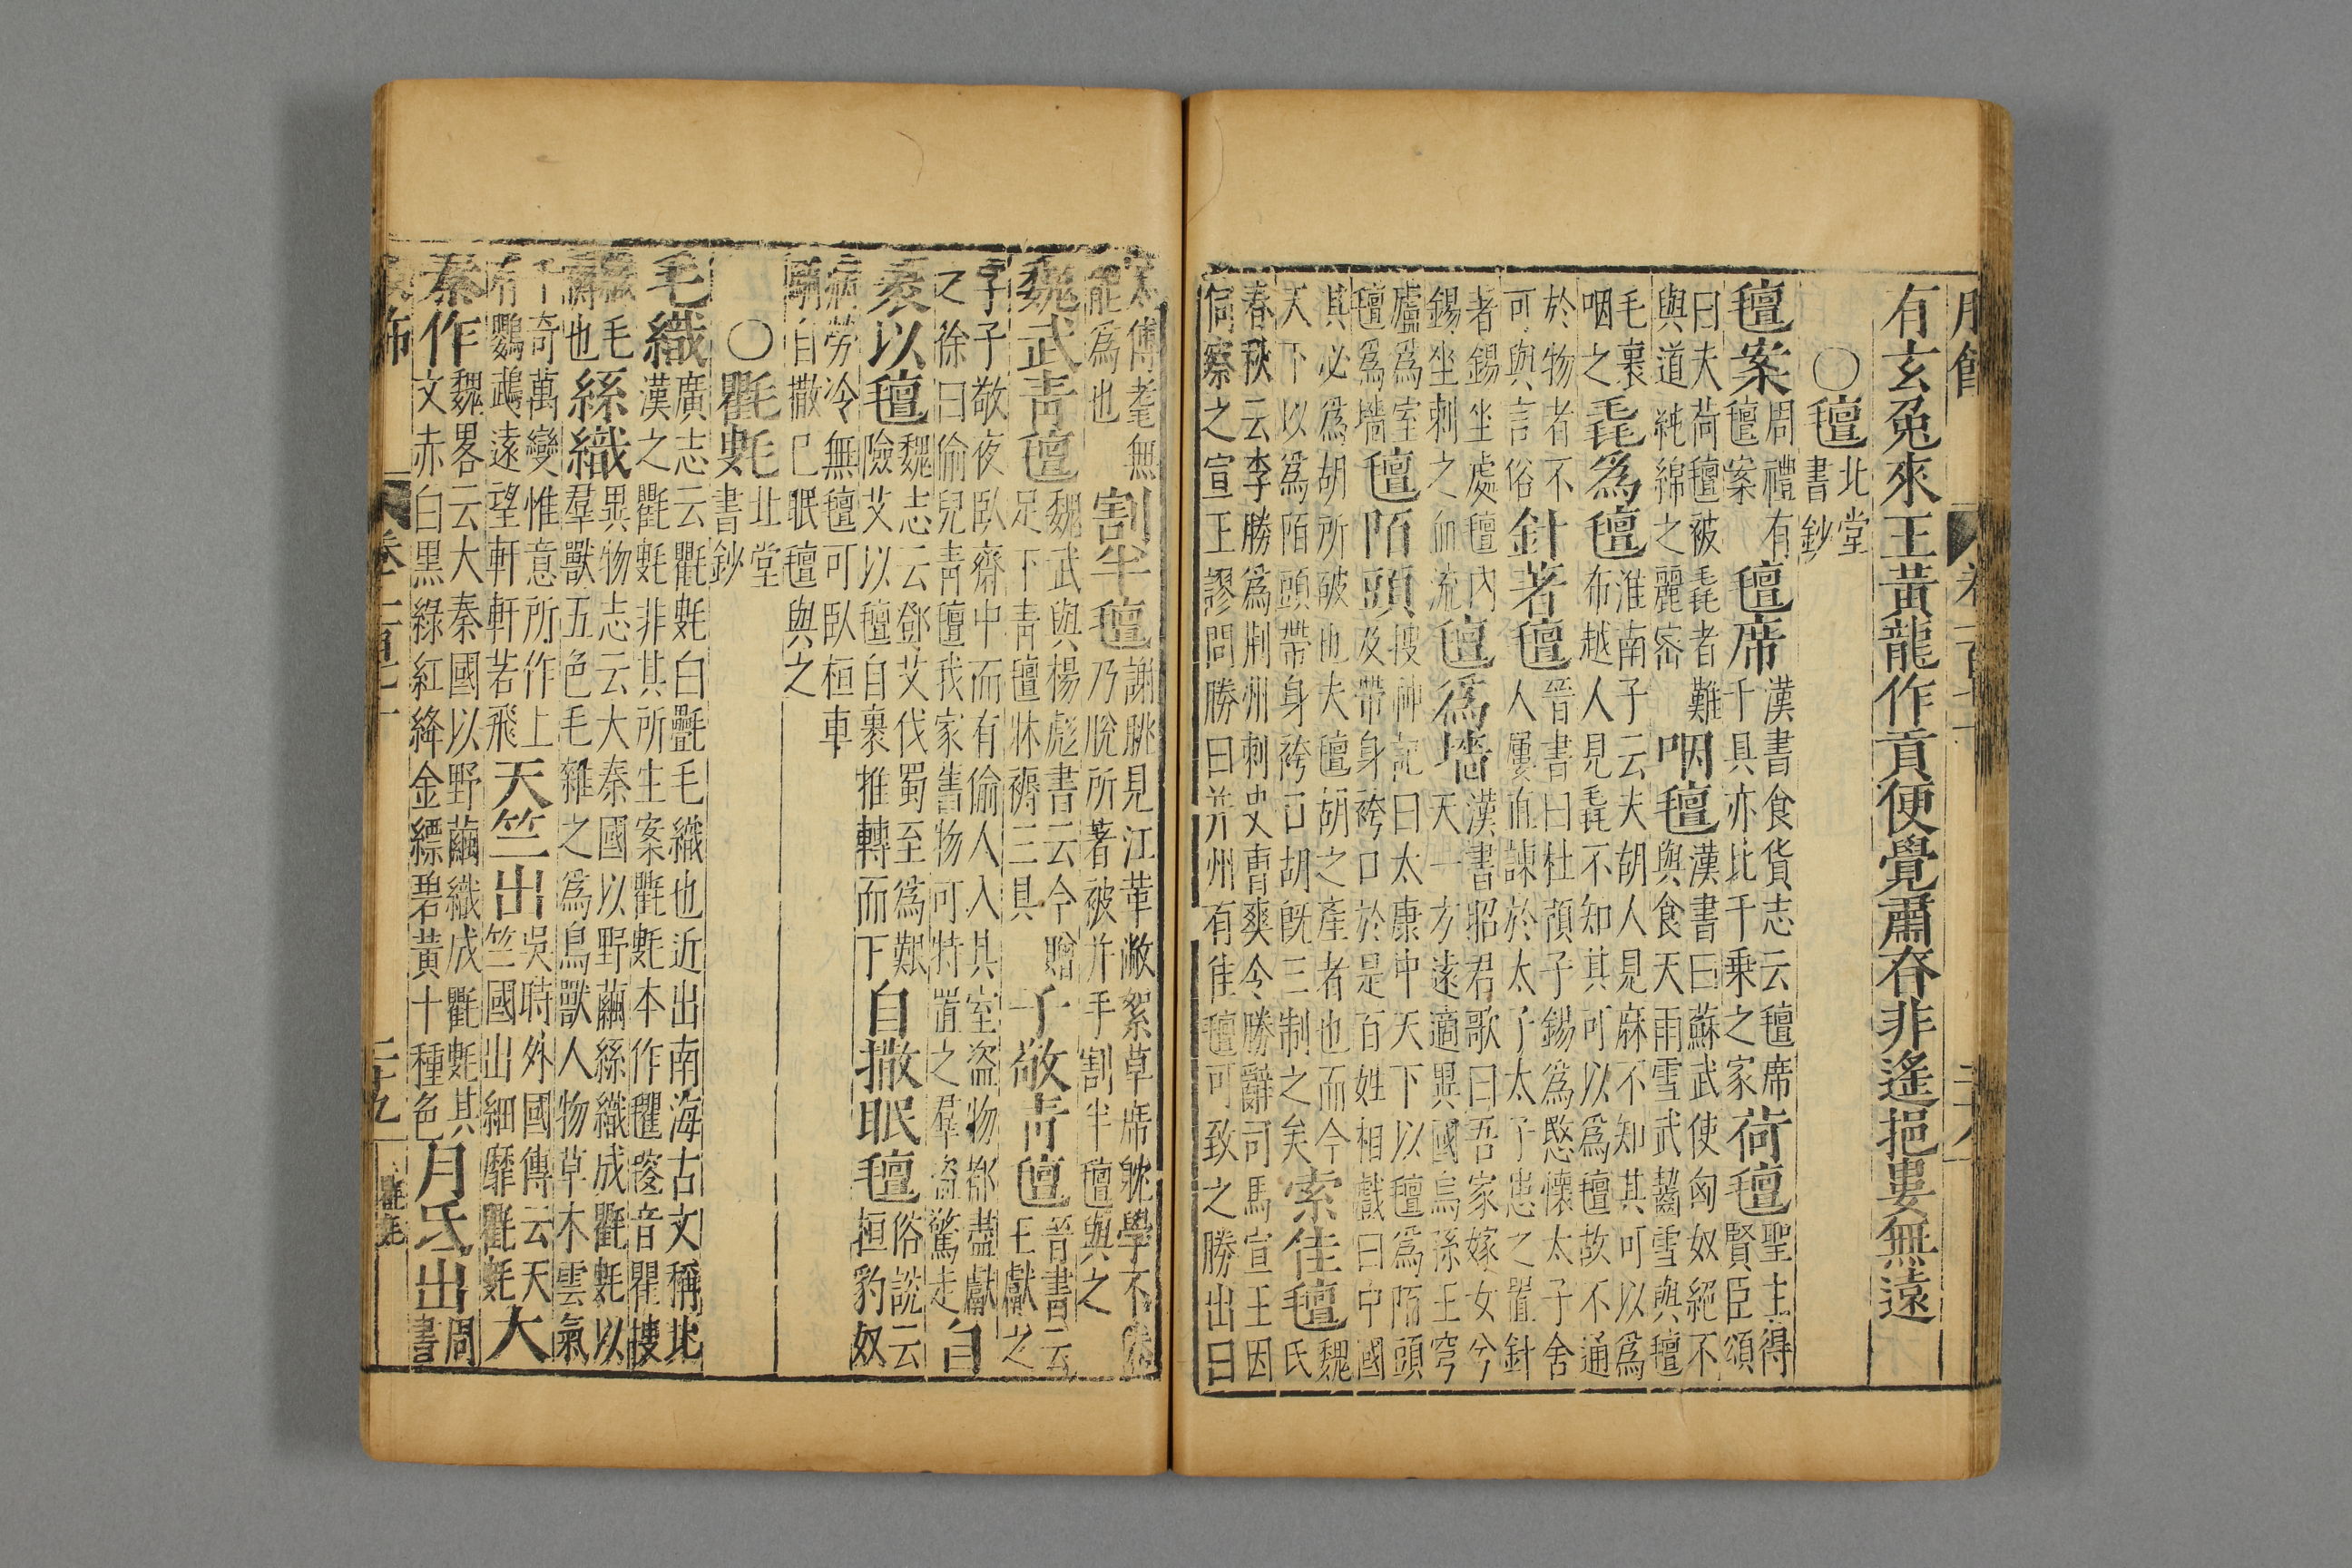 服飾 卷一百七十 三十八
有玄兔來王黃龍作貢便覺肅眘非遙挹婁無遠
〇氊北堂書鈔
氊案周禮有氊案氊席漢書食貨志云氊席千具亦比千乗之家荷氊聖主得賢臣頌
曰夫荷氊被毳者難與道純綿之麗宻咽氊漢書曰蘇武使匈奴絕不與食天雨雪武齧雪與氊
毛裹咽之毳爲氊淮南子云夫胡人見麻不知其可以爲布越人見毳不知其可以爲氊故不通
於物者不可與言俗針著氊晉書曰杜預子錫爲愍懷太子舍人屢直諫於太子太子患之置針
著錫坐處氊內錫坐刺之血流氊爲墻漢書昭君歌曰吾家嫁女兮天一方遠適異國烏孫王穹
廬爲室氊爲墻氊陌頭搜神記曰太康中天下以氊爲陌頭及帶身袴口於是百姓相戲曰中國
其必爲胡所破也夫氊胡之產者也而今天下以爲陌頭帶身袴口胡旣三制之矣索佳氊魏氏
春秋云李勝爲荆州刺史曹爽令勝辭司馬宣王因伺察之宣王謬問勝曰并州有佳氊可致之勝出曰
太傅耄無能爲也割半氊謝朓見江革敝絮草席躭學不倦乃脫所著被并手割半氊與之
魏武青氊魏武與楊彪書云今贈足下青氊牀褥三具子敬青氊晉書云王獻之
字子敬夜臥齋中而有偷人入其室盜物都盡獻之徐曰偷兒青氊我家舊物可特置之羣盜驚走自
裹以氊魏志云鄧艾伐蜀至爲艱險艾以氊自裹推轉而下自撒眠氊俗說云桓豹奴
病勞冷無氊可臥桓車騎自撒巳眠氊與之
〇氍毹北堂書鈔
毛織廣志云氍毹白氎毛織也近出南海古文稱北漢之氍毹非其所生案氍毹本作音瞿搜
織毛褥也絲織異物志云大秦國以野繭絲織成氍毹以羣獸五色毛雜之爲鳥獸人物草木雲氣
千奇萬變惟意所作上有鸚鵡遠望軒軒若飛天竺出吳時外國傳云天竺國出細靡氍毹大
秦作魏畧云大秦國以野繭織成氍毹其文赤白黑綠紅絳金縹碧黃十種色月氏出周書
服飾 卷一百七十 三十九 氍毹